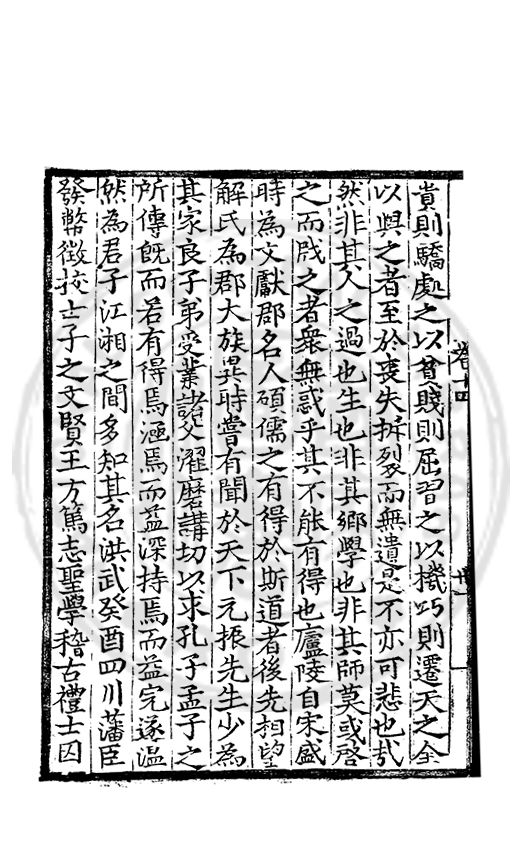 卷十四
廿一
貴則驕處之以貧賤則屈習之以機巧則遷天之全
以與之者至於喪失拆裂而無遺是不亦可悲也哉
然非其父之過也生也非其鄉學也非其師莫或啓
之而戕之者衆無惑乎其不能有得也廬陵自宋盛
時為文獻郡名人碩儒之有得於斯道者後先相望
解氏為郡大族異時嘗有聞於天下元振先生少為
其家良子弟受業諸父濯磨講切以求孔子孟子之
所傳旣而若有得焉涵焉而益深持焉而益完遂温
然為君子江湘之間多知其名洪武癸酉四川藩臣
發幣徵挍士子之文賢王方篤志聖學稽古禮士因